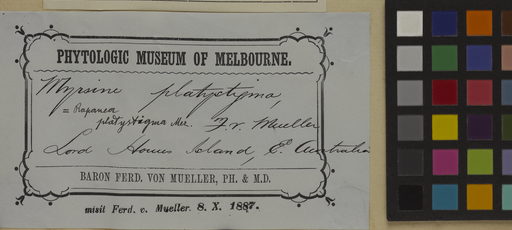 PHYTOLOGIC MUSEUM OF MELBOURNE.
Myrsine platystigma,
= Rapanea
platystigma Mez. F. v. Mueller
Lord Howes Island, E. Australia
BARON FERD. VON MUELLER, PH. & M.D.
misit Ferd. v. Mueller. 8. X. 1887.